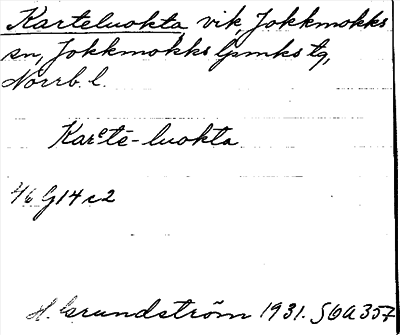 Karteluokta, vik, Jokkmokks
sn, Jokkmokks lpmks tg,
Norrb. l.
Karᵉtē-luokta
46 G14 c2
H. Grundström 1931. S6A357